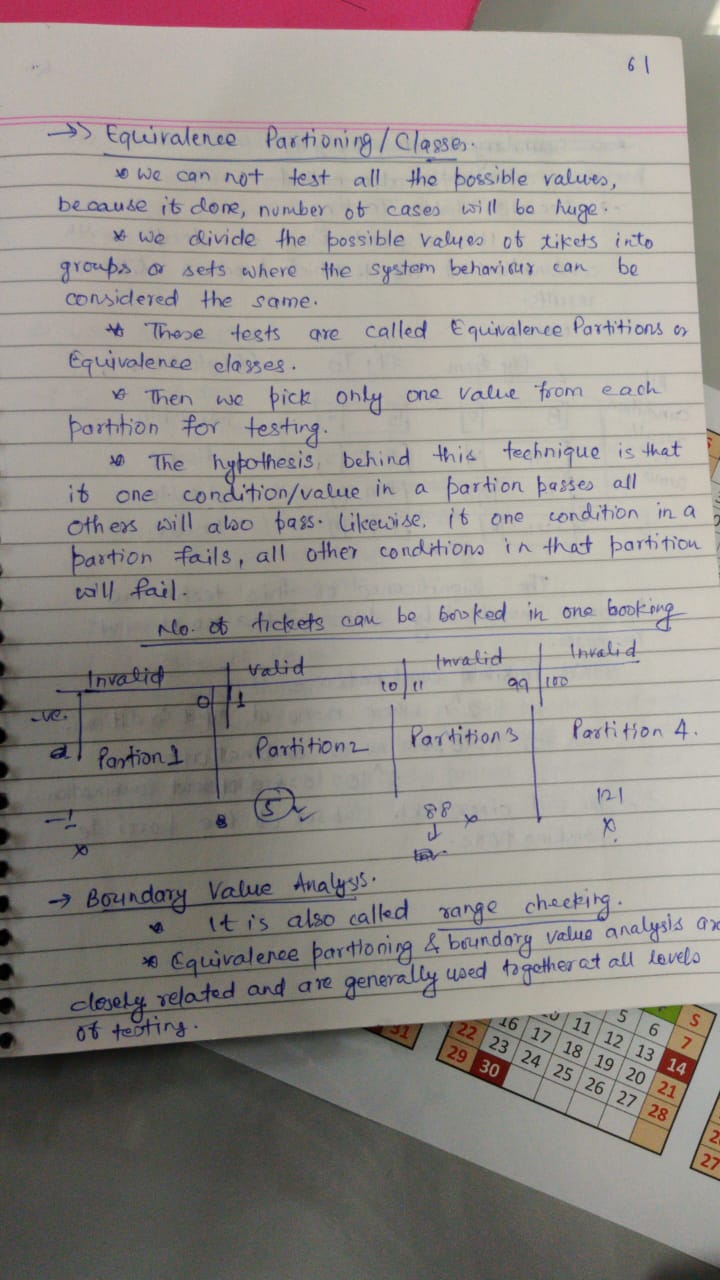 61
->> Equivalence Partioning / Classes.
* We can not test all the possible values,
because if done, number of cases will be huge.
* we divide the possible values of tikets into
groups or sets where the system behaviour can be
considered the same.
* These tests are called Equivalence Partitions or
Equivalence classes.
* Then we pick only one value from each
partition for testing.
* The hypothesis behind this technique is that
if one condition/value in a partion passes all
others will also pass. Likewise, if one condition in a
partion fails, all other conditions in that partition
will fail.
No. of tickets can be booked in one booking
Invalid Valid Invalid Invalid
-ve. 0 1 10 11 99 100
Partion 1 Partition 2 Partition 3 Partition 4.
-1 5 88 121
x ✓ x x
-> Boundary Value Analysis.
* It is also called range checking.
* Equivalence partioning & boundary value analysis are
closely related and are generally used together at all levels
of testing.
S
5 6 7
11 12 13 14
16 17 18 19 20 21
22 23 24 25 26 27 28
29 30
31
27